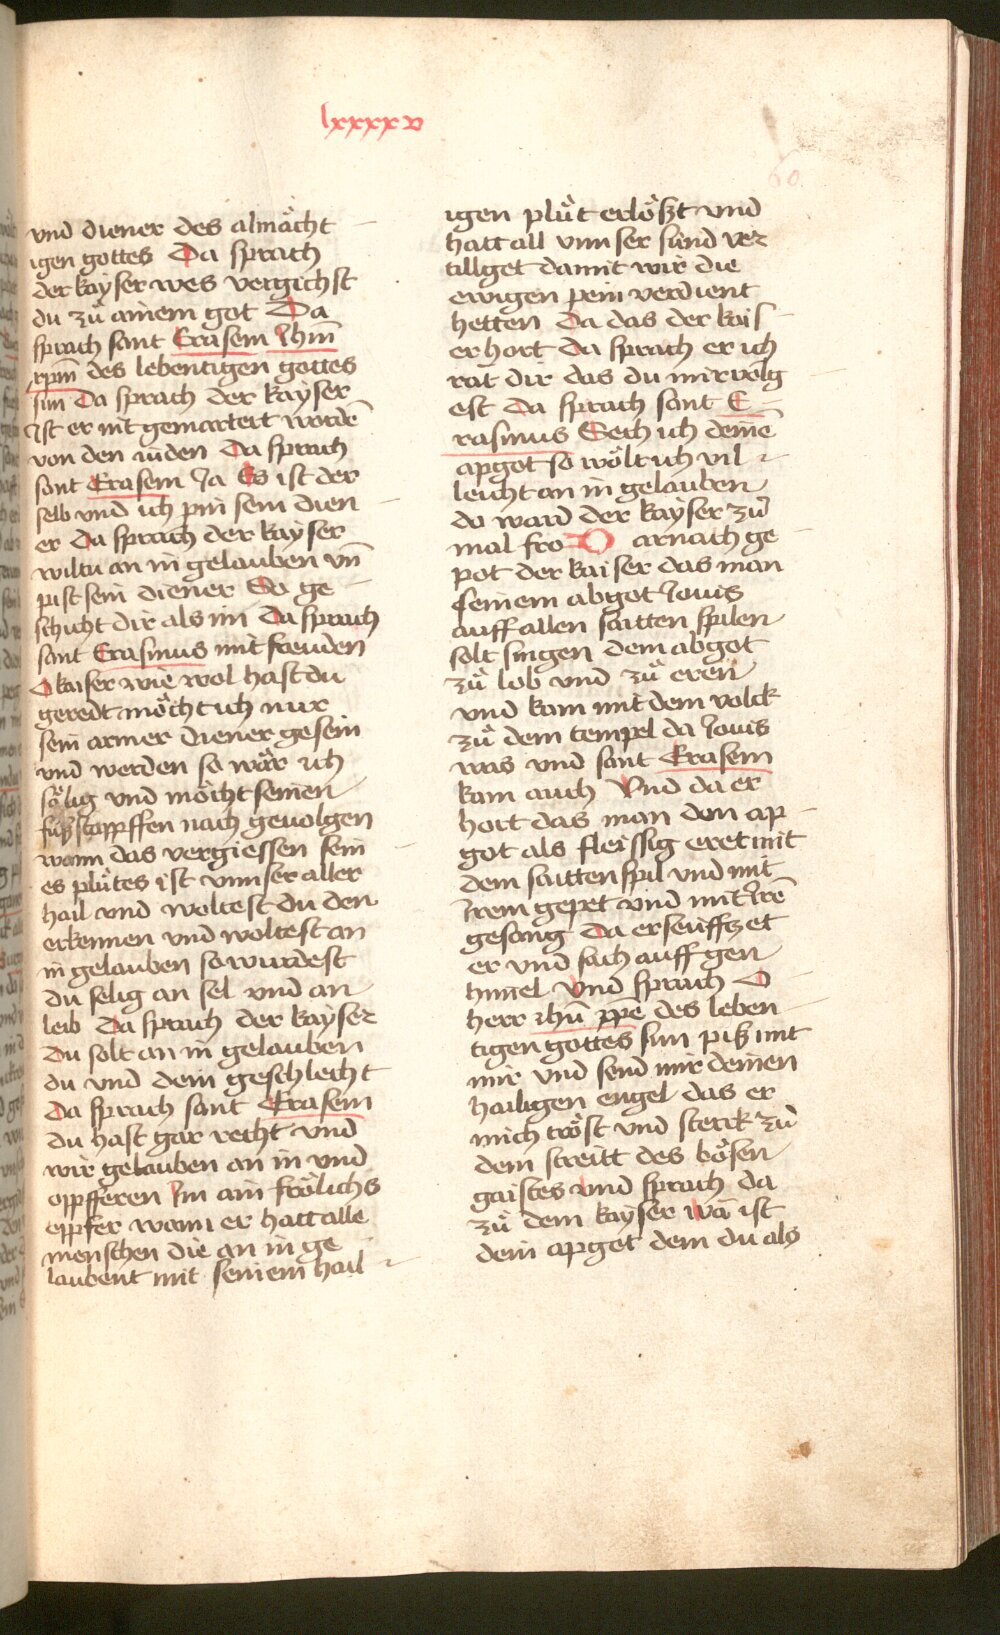 lxxxxv
60
vnd diener des almächt
igen gottes Da sprach
der kayser wes vergichst
du zů ainem got Da
sprach sant Erasem Jhm̄
xpm̄ des lebentigen gottes
sun Da sprach der kayser
Ist er nit gemartert wordē
von den iuden Da sprach
sant Erasem Ja Es ist der
selb vnd ich pin sein dien
er Da sprach der kayser
wiltu an in gelauben vn̄
pist sein diener So ge
schicht dir als im Da sprach
sant Erasmus mit freuden
O kaiser wie wol hast du
geredt möcht ich nur
sein armer diener gesein
vnd werden so wär ich
sölig vnd möcht seinen
fußstappffen nach geuolgen
wann das vergiessen sein
es plůtes ist vnnser aller
hail vnd woltest du den
erkennen vnd woltest an
in gelauben so wurdest
du selig an sel vnd an
leib Da sprach der kayser
Du solt an in gelauben
du vnd dein geschlecht
Da sprach sant Erasem
du hast gar recht vnd
wir gelauben an in vnd
oppfferen Im ain frölichs
oppfer wann er hatt alle
menschen die an in ge
laubent mit seinem hail
igen plůt erlößt vnd
hatt all vnnser sünd ver
tillget damit wir die
ewigen pein verdient
hetten Da das der kais
er hort da sprach er ich
rat dir das du mir volg
est Da sprach sant E
rasmus Sech ich deinē
apgot so wölt ich vil
leicht an in gelauben
do ward der kayser zů
mal fro Darnach ge
pot der kaiser das man
seinem abgot Jouis
auff allen saitten spilen
solt singen dem abgot
zů lob vnd zů eren
vnd kam mit dem volck
zů dem tempel da Jouis
was vnd sant Erasem
kam auch Vnd da er
hort das man den ap
got als fleissig eret mit
dem saittenspil vnd mit
Irem gepet vnd mit Irē
gesang Da erseufftzet
er vnd sach auff gen
himel Vnd sprach O
herr Jhū xpē des leben
tigen gottes sun piß mit
mir vnd send mir deinen
hailigen engel das er
mich tröst vnd sterck zů
dem streitt des bösen
gaistes vnd sprach da
zů dem kayser wa ist
dein apgot dem du als